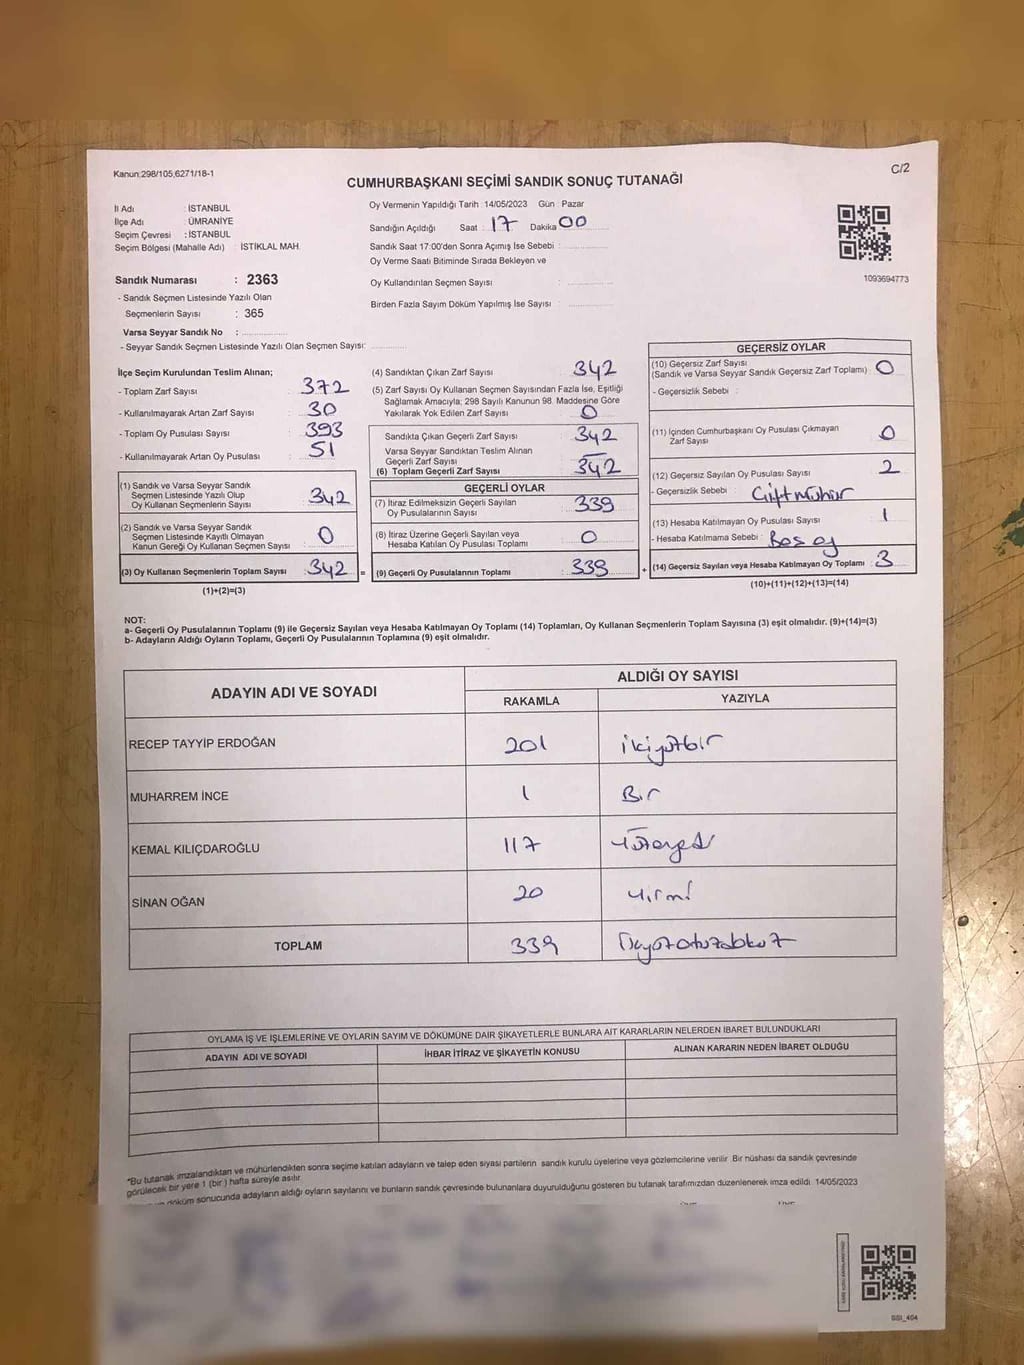 Kanun:298/105,6271/18-1
C/2
CUMHURBAŞKANI SEÇİMİ SANDIK SONUÇ TUTANAĞI
İl Adı : İSTANBUL
İlçe Adı : ÜMRANİYE
Seçim Çevresi : İSTANBUL
Seçim Bölgesi (Mahalle Adı) : İSTİKLAL MAH.
Sandık Numarası : 2363
- Sandık Seçmen Listesinde Yazılı Olan
Seçmenlerin Sayısı : 365
Varsa Seyyar Sandık No :
- Seyyar Sandık Seçmen Listesinde Yazılı Olan Seçmen Sayısı:
Oy Vermenin Yapıldığı Tarih :14/05/2023 Gün : Pazar
Sandığın Açıldığı Saat : 17 Dakika 00
Sandık Saat 17:00'den Sonra Açımış İse Sebebi :
Oy Verme Saati Bitiminde Sırada Bekleyen ve
Oy Kullandırılan Seçmen Sayısı :
Birden Fazla Sayım Döküm Yapılmış İse Sayısı :
1093694773
İlçe Seçim Kurulundan Teslim Alınan;
- Toplam Zarf Sayısı : 372
- Kullanılmayarak Artan Zarf Sayısı : 30
- Toplam Oy Pusulası Sayısı : 393
- Kullanılmayarak Artan Oy Pusulası : 51
(1) Sandık ve Varsa Seyyar Sandık
Seçmen Listesinde Yazılı Olup
Oy Kullanan Seçmenlerin Sayısı : 342
(2) Sandık ve Varsa Seyyar Sandık
Seçmen Listesinde Kayıtlı Olmayan
Kanun Gereği Oy Kullanan Seçmen Sayısı : 0
(3) Oy Kullanan Seçmenlerin Toplam Sayısı : 342 =
(1)+(2)=(3)
(4) Sandıktan Çıkan Zarf Sayısı : 342
(5) Zarf Sayısı Oy Kullanan Seçmen Sayısından Fazla İse, Eşitliği
Sağlamak Amacıyla; 298 Sayılı Kanunun 98. Maddesine Göre
Yakılarak Yok Edilen Zarf Sayısı : 0
Sandıkta Çıkan Geçerli Zarf Sayısı : 342
Varsa Seyyar Sandıktan Teslim Alınan
Geçerli Zarf Sayısı : –
(6) Toplam Geçerli Zarf Sayısı : 342
GEÇERLİ OYLAR
(7) İtiraz Edilmeksizin Geçerli Sayılan
Oy Pusulalarının Sayısı : 339
(8) İtiraz Üzerine Geçerli Sayılan veya
Hesaba Katılan Oy Pusulası Toplamı : 0
(9) Geçerli Oy Pusulalarının Toplamı : 339 +
GEÇERSİZ OYLAR
(10) Geçersiz Zarf Sayısı
(Sandık ve Varsa Seyyar Sandık Geçersiz Zarf Toplamı) : 0
- Geçersizlik Sebebi :
(11) İçinden Cumhurbaşkanı Oy Pusulası Çıkmayan
Zarf Sayısı : 0
(12) Geçersiz Sayılan Oy Pusulası Sayısı : 2
- Geçersizlik Sebebi : Çift mühür
(13) Hesaba Katılmayan Oy Pusulası Sayısı : 1
- Hesaba Katılmama Sebebi : Boş oy
(14) Geçersiz Sayılan veya Hesaba Katılmayan Oy Toplamı : 3
(10)+(11)+(12)+(13)=(14)
NOT:
a- Geçerli Oy Pusulalarının Toplamı (9) ile Geçersiz Sayılan veya Hesaba Katılmayan Oy Toplamı (14) Toplamları, Oy Kullanan Seçmenlerin Toplam Sayısına (3) eşit olmalıdır. (9)+(14)=(3)
b- Adayların Aldığı Oyların Toplamı, Geçerli Oy Pusulalarının Toplamına (9) eşit olmalıdır.
ADAYIN ADI VE SOYADI
ALDIĞI OY SAYISI
RAKAMLA YAZIYLA
RECEP TAYYİP ERDOĞAN 201 ikiyüzbir
MUHARREM İNCE 1 Bir
KEMAL KILIÇDAROĞLU 117
SİNAN OĞAN 20 yirmi
TOPLAM 339 Üçyüzotuzdokuz
OYLAMA İŞ VE İŞLEMLERİNE VE OYLARIN SAYIM VE DÖKÜMÜNE DAİR ŞİKAYETLERLE BUNLARA AİT KARARLARIN NELERDEN İBARET BULUNDUKLARI
ADAYIN ADI VE SOYADI İHBAR İTİRAZ VE ŞİKAYETİN KONUSU ALINAN KARARIN NEDEN İBARET OLDUĞU
*Bu tutanak imzalandıktan ve mühürlendikten sonra seçime katılan adayların ve talep eden siyasi partilerin sandık kurulu üyelerine veya gözlemcilerine verilir. Bir nüshası da sandık çevresinde
görülecek bir yere 1 (bir) hafta süreyle asılır.
döküm sonucunda adayların aldığı oyların sayılarını ve bunların sandık çevresinde bulunanlara duyurulduğunu gösteren bu tutanak tarafımızdan düzenlenerek imza edildi. 14/05/2023
SSI_464